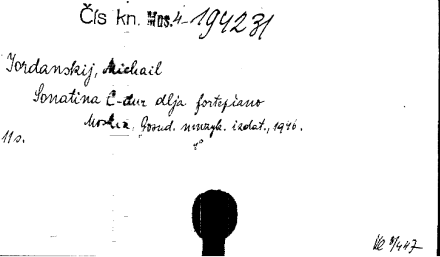 Čís kn. Mus.4-194231
Jordanskij, Michail
Sonatina C-dur dlja fortepiano
Moskva, Gosud. muzyk. izdat., 1946.
11 s. 4°